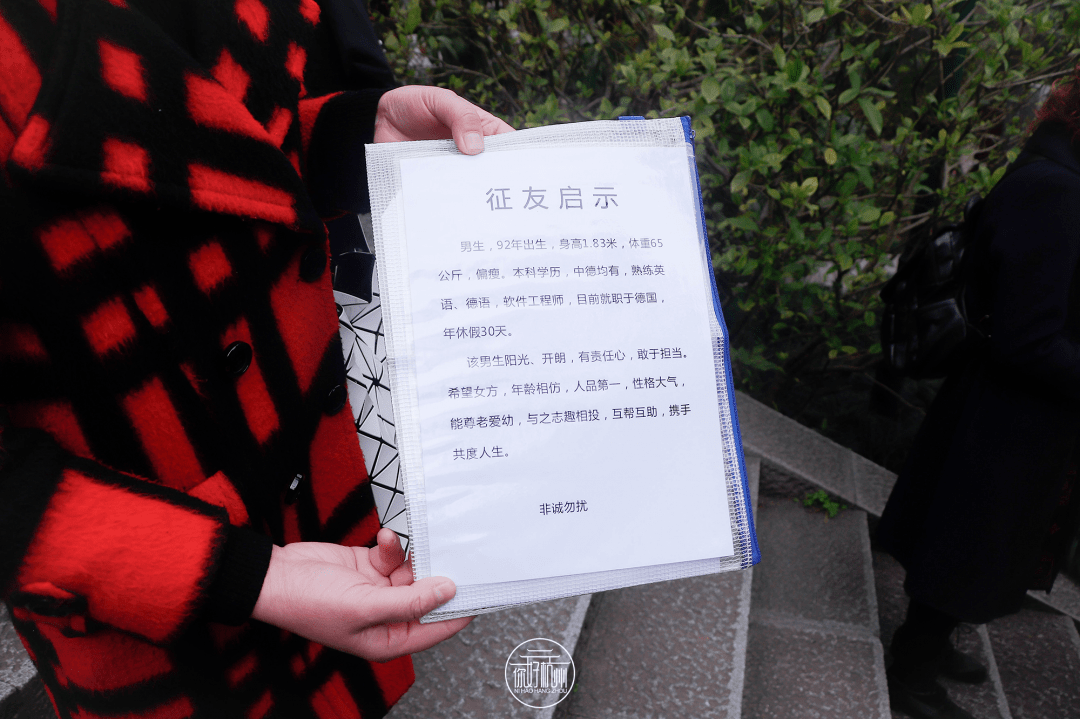 征友启示
男生，92年出生，身高1.83米，体重65
公斤，偏瘦。本科学历，中德均有，熟练英
语、德语，软件工程师，目前就职于德国，
年休假30天。
该男生阳光、开朗，有责任心，敢于担当。
希望女方，年龄相仿，人品第一，性格大气，
能尊老爱幼，与之志趣相投，互帮互助，携手
共度人生。
非诚勿扰
你好杭州
NI HAO HANG ZHOU